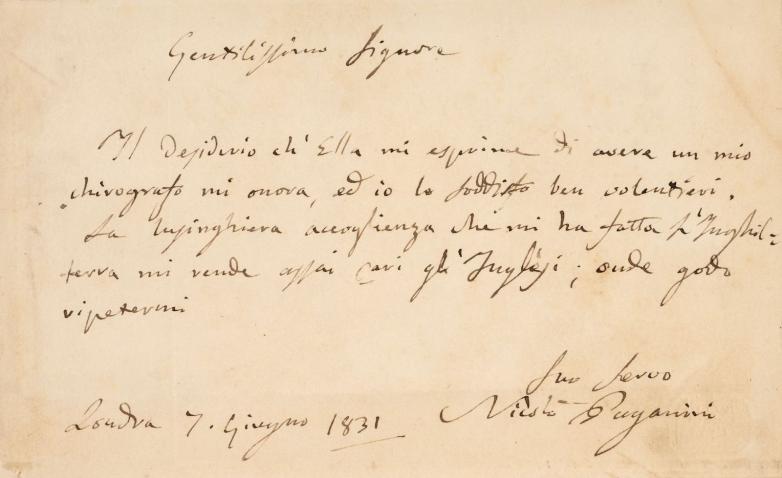 Gentilissimo Signore
Il desiderio ch'Ella mi esprime di avere un mio
chirografo mi onora, ed io lo soddisfo ben volentieri.
La lusinghiera accoglienza che mi ha fatta l'Inghil=
terra mi rende assai cari gl'Inglesi; onde godo
ripetermi
Suo servo
Londra 7. Giugno 1831
Nicolò Paganini